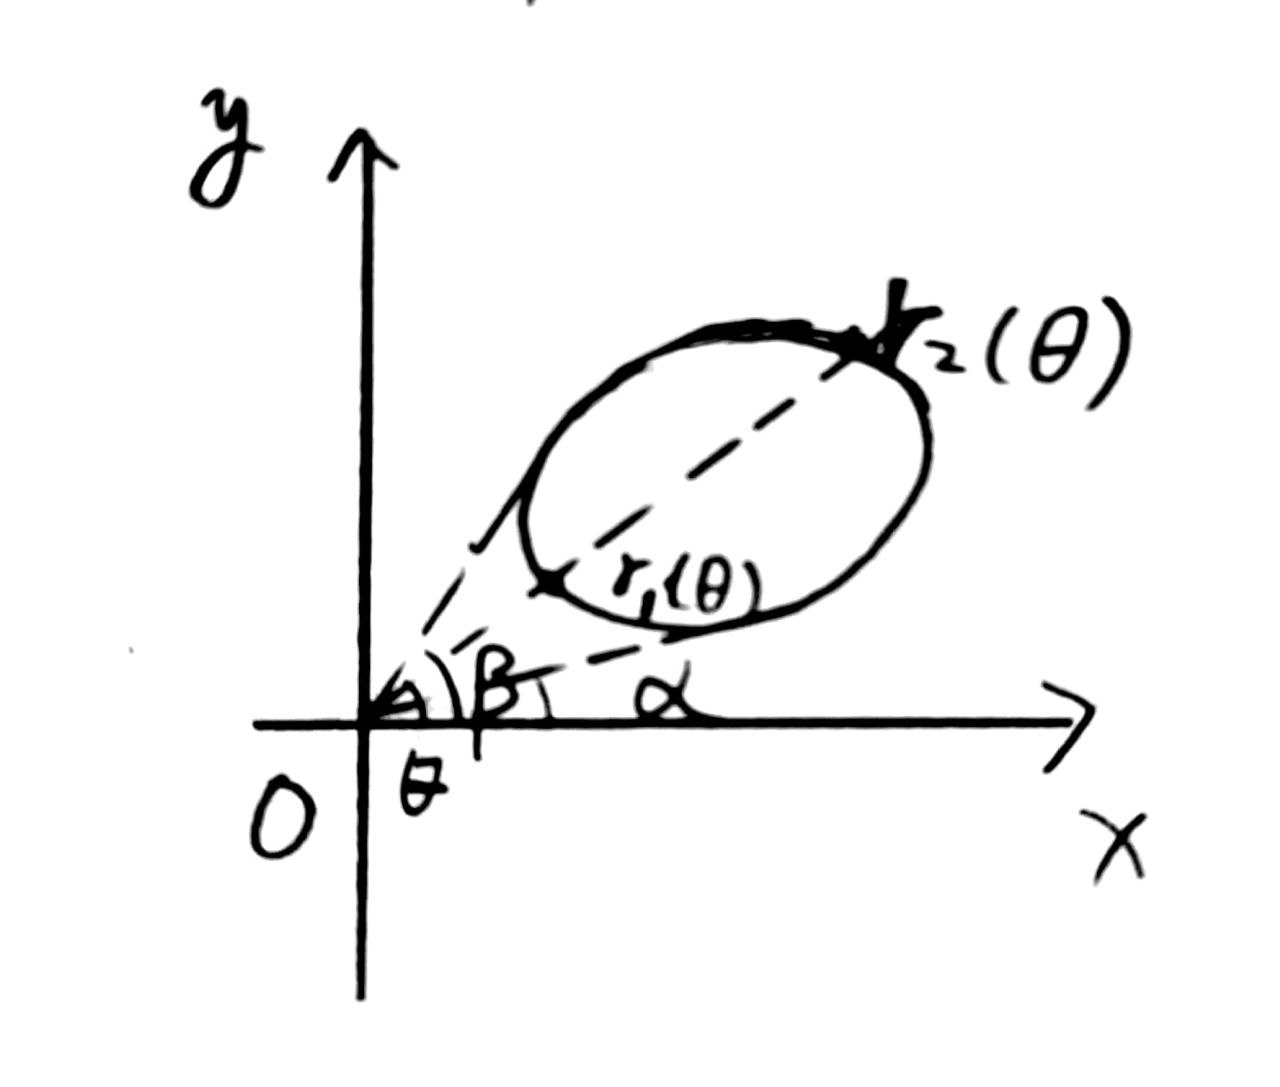 y
r₂(θ)
r₁(θ)
β
α
O
θ
x